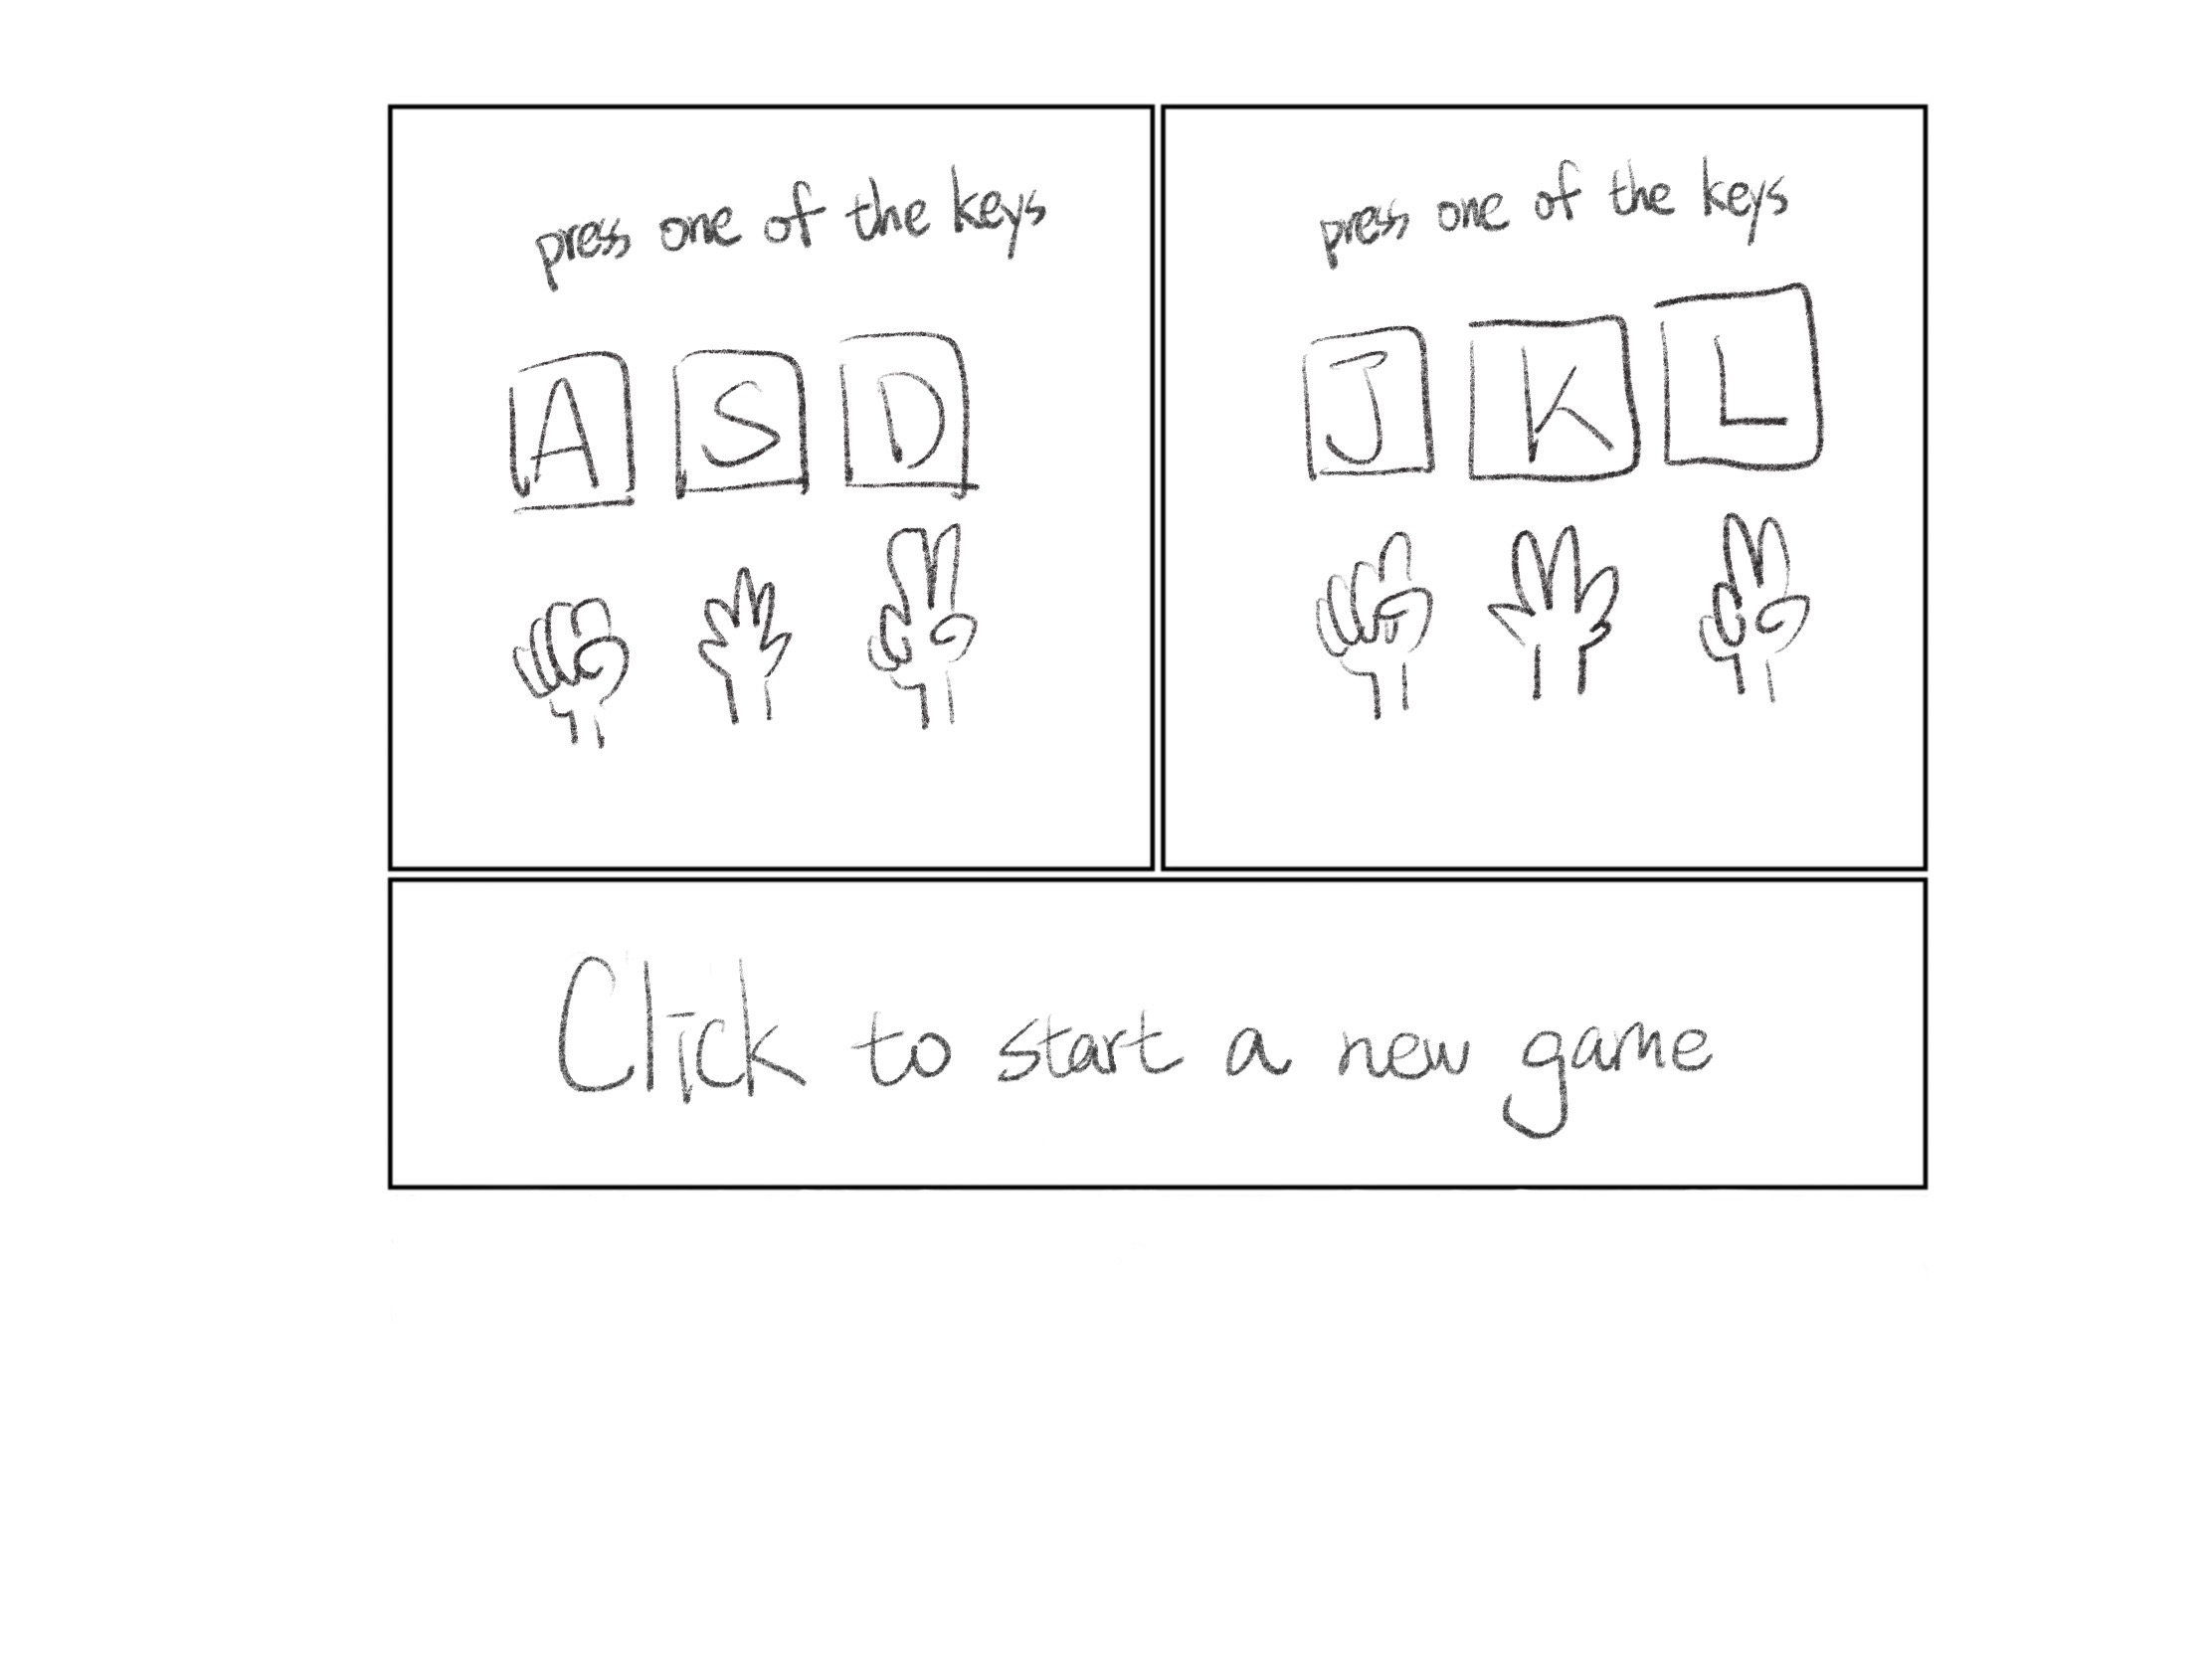 press one of the keys
A S D
press one of the keys
J K L
Click to start a new game